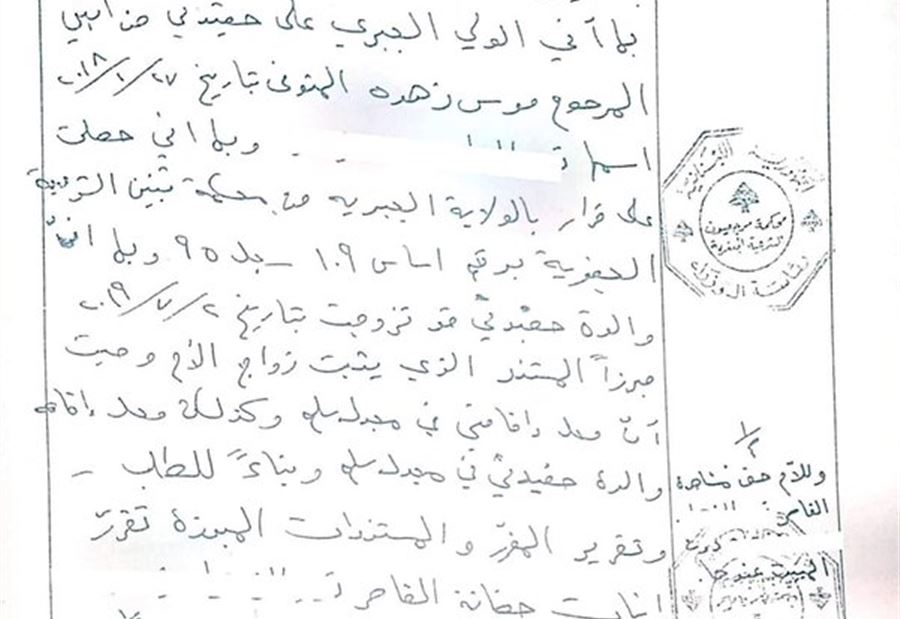 بما أني الولي الجبري على حفيدتي من ابني
المرحوم موسى زهده المتوفى بتاريخ ٢٧/١/٢٠١٨
اسمها وبما اني حصلت
على قرار بالولاية الجبرية من محكمة تبنين الشرعية
الجعفرية برقم اساس ١٠٩ سجل ٩٥ وبما انّ
والدة حفيدتي قد تزوجت بتاريخ ٢/٧/٢٠١٩
مبرزاً المستند الذي يثبت زواج الأم وحيث
أنّ محل إقامتي في مجدل سلم وكذلك محل إقامة
والدة حفيدتي في مجدل سلم وبناءً للطلب -
وتقرير المقرّر والمستندات المبرزة تقرّر
اثبات حضانة القاصر
الجمهورية اللبنانية
محكمة مرجعيون
الشرعية الجعفرية
رئاسة الوزراء
وللأم حق مشاهدة
القاصر
دون
المبيت عندها